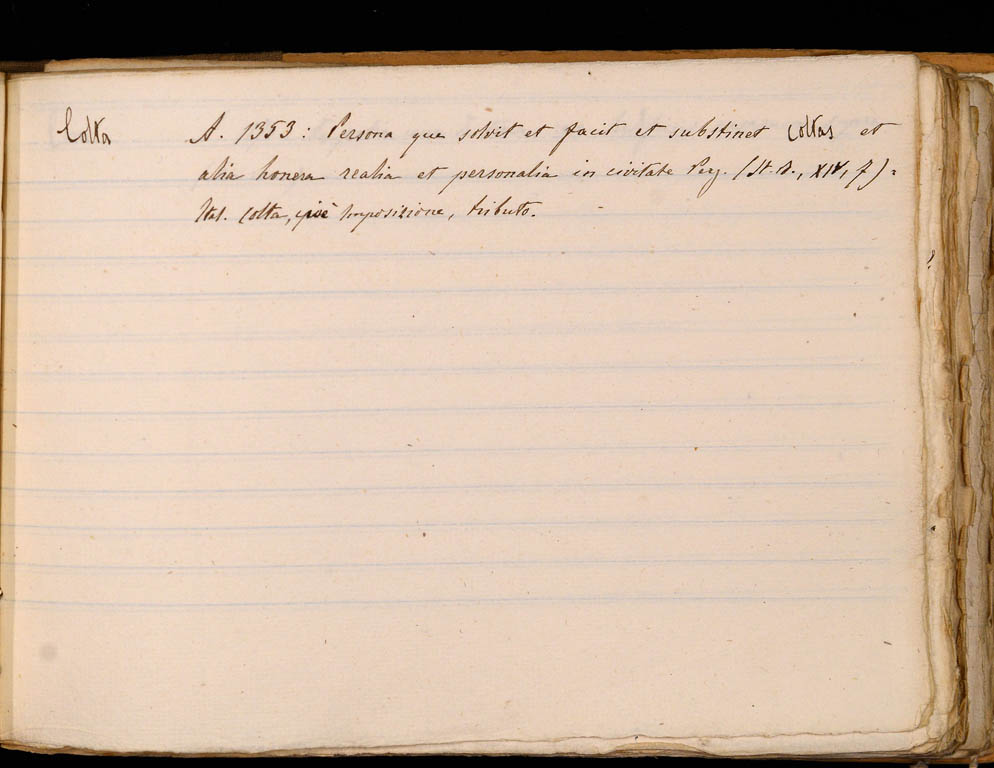 Colta A. 1353: Persona que solvit et facit et substinet coltas et
alia honera realia et personalia in civitate Perg. (St. A., XIV, f) =
Ital. Colta, cioè Imposizione, tributo.